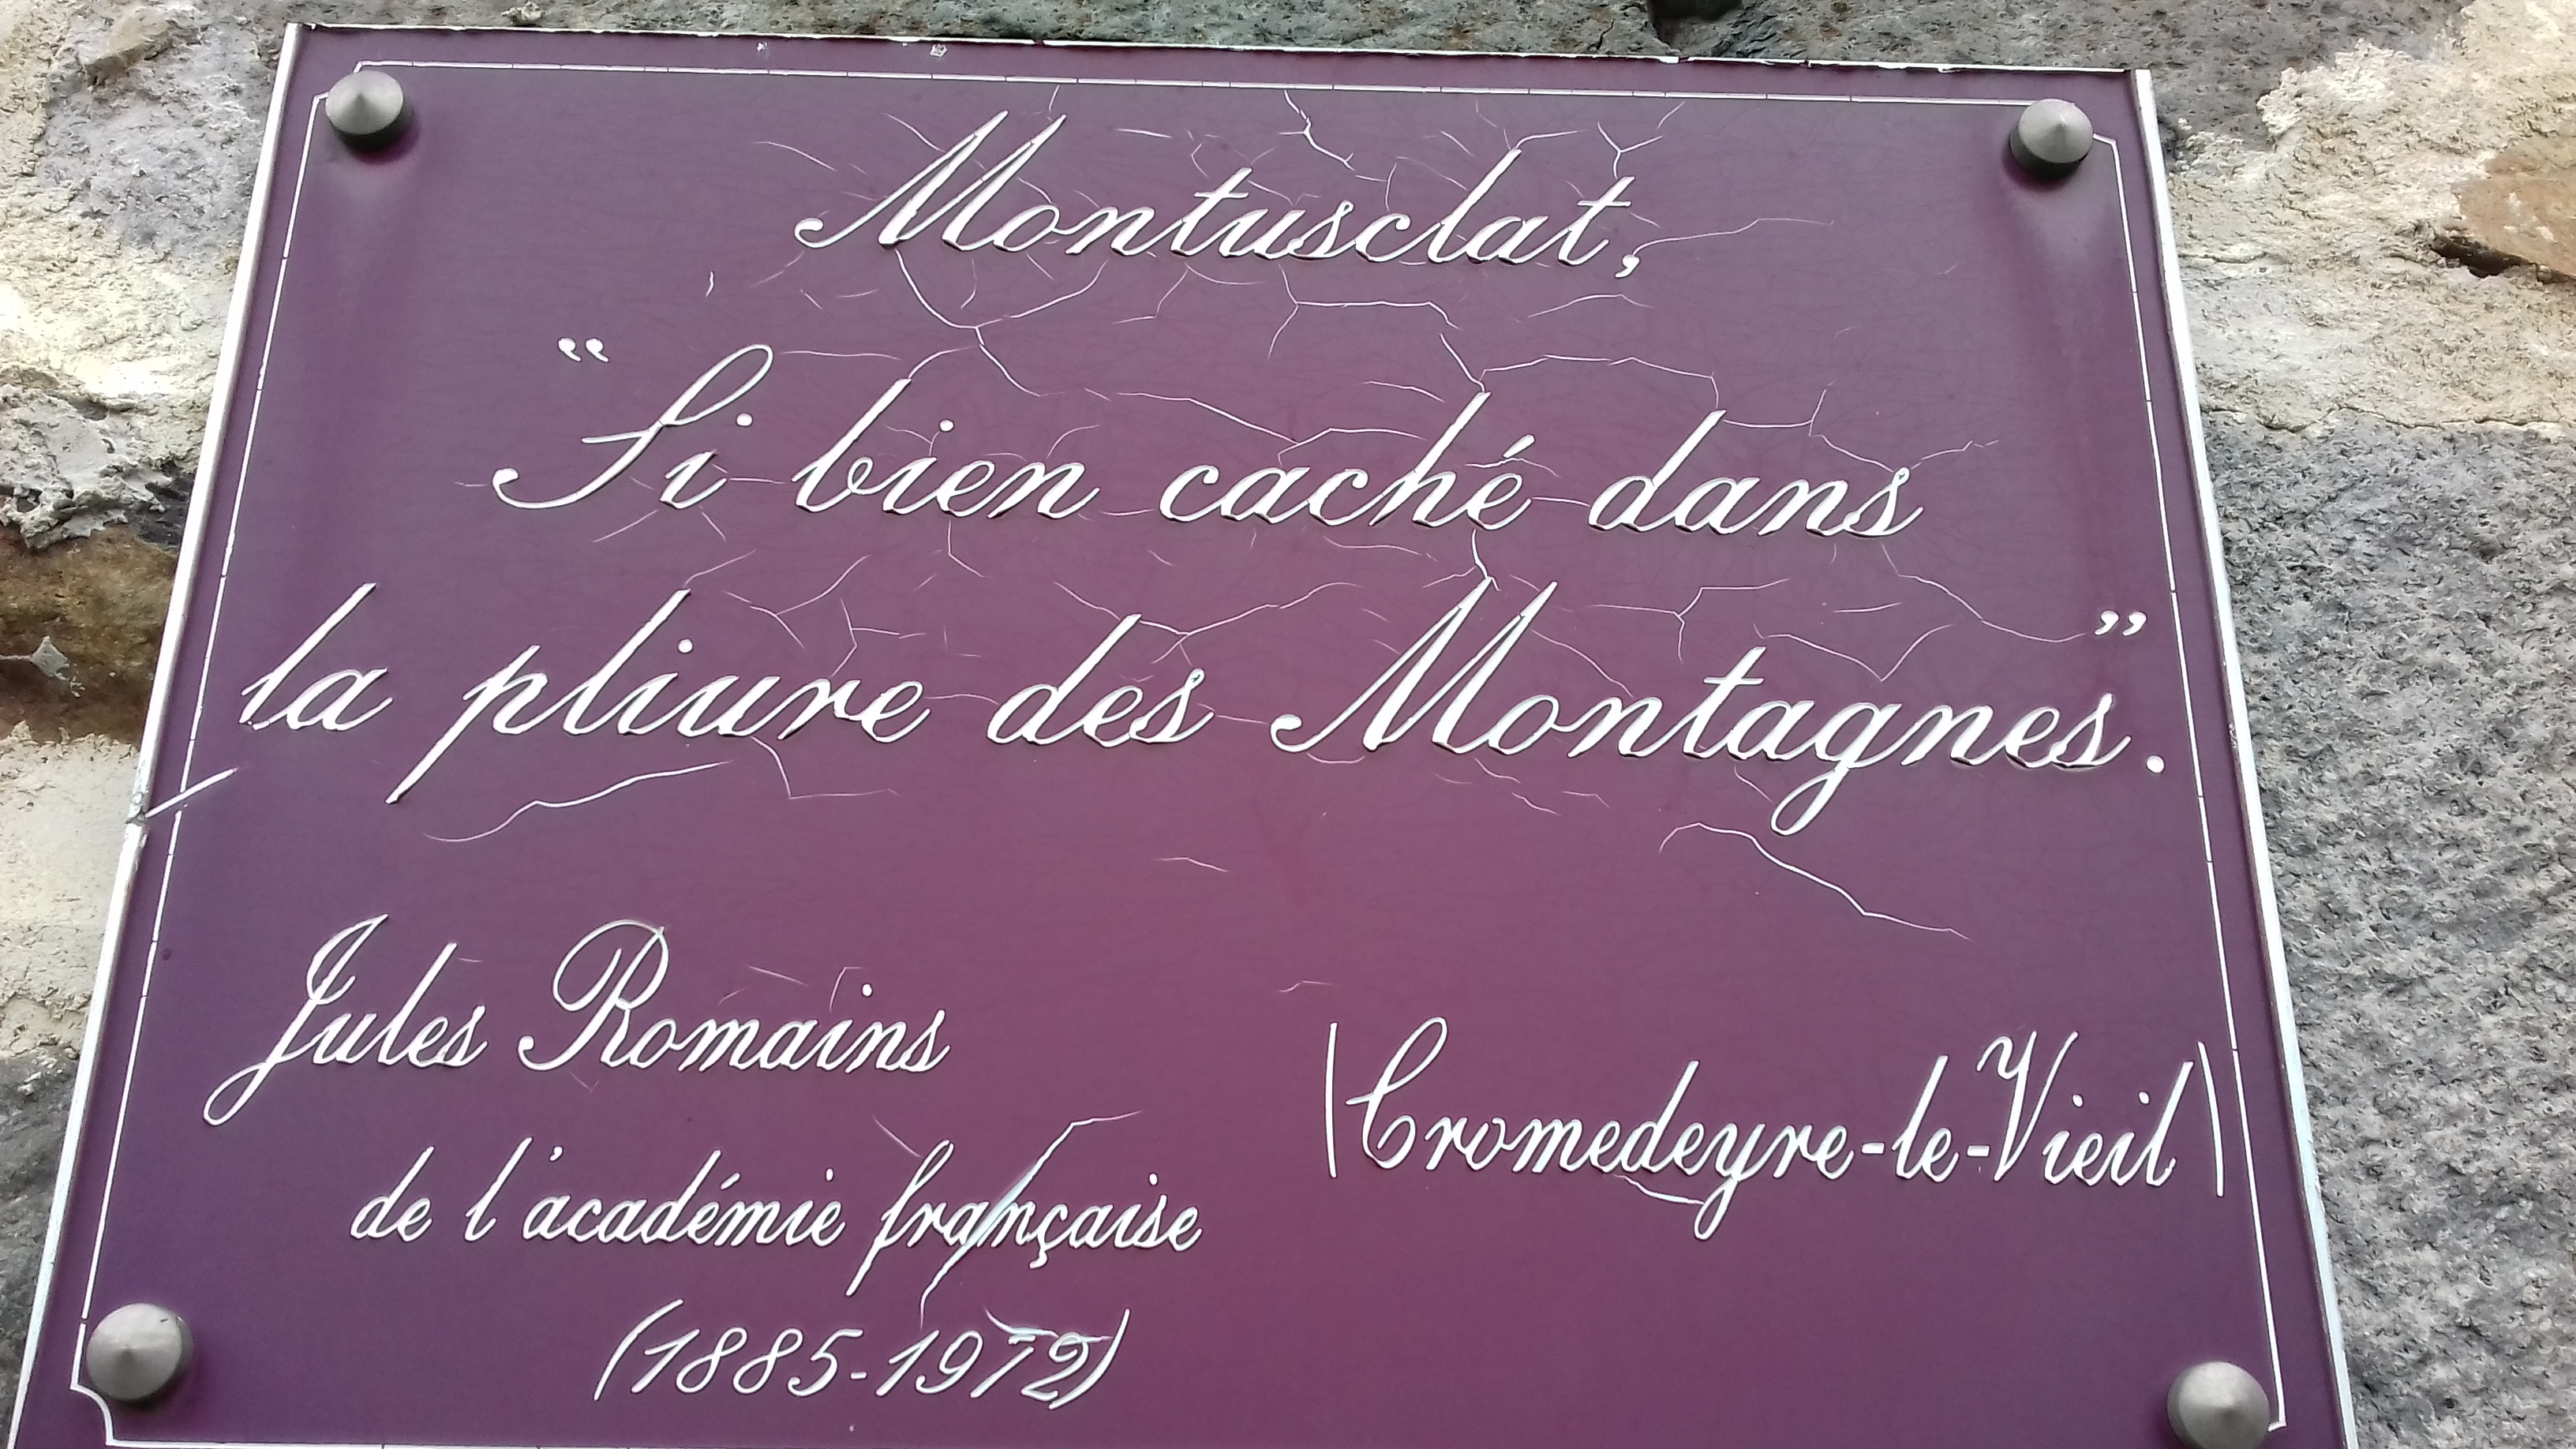 Montusclat,
"Si bien caché dans
la pliure des Montagnes".
Jules Romains
(Cromedeyre-le-Vieil)
de l'académie française
(1885-1972)